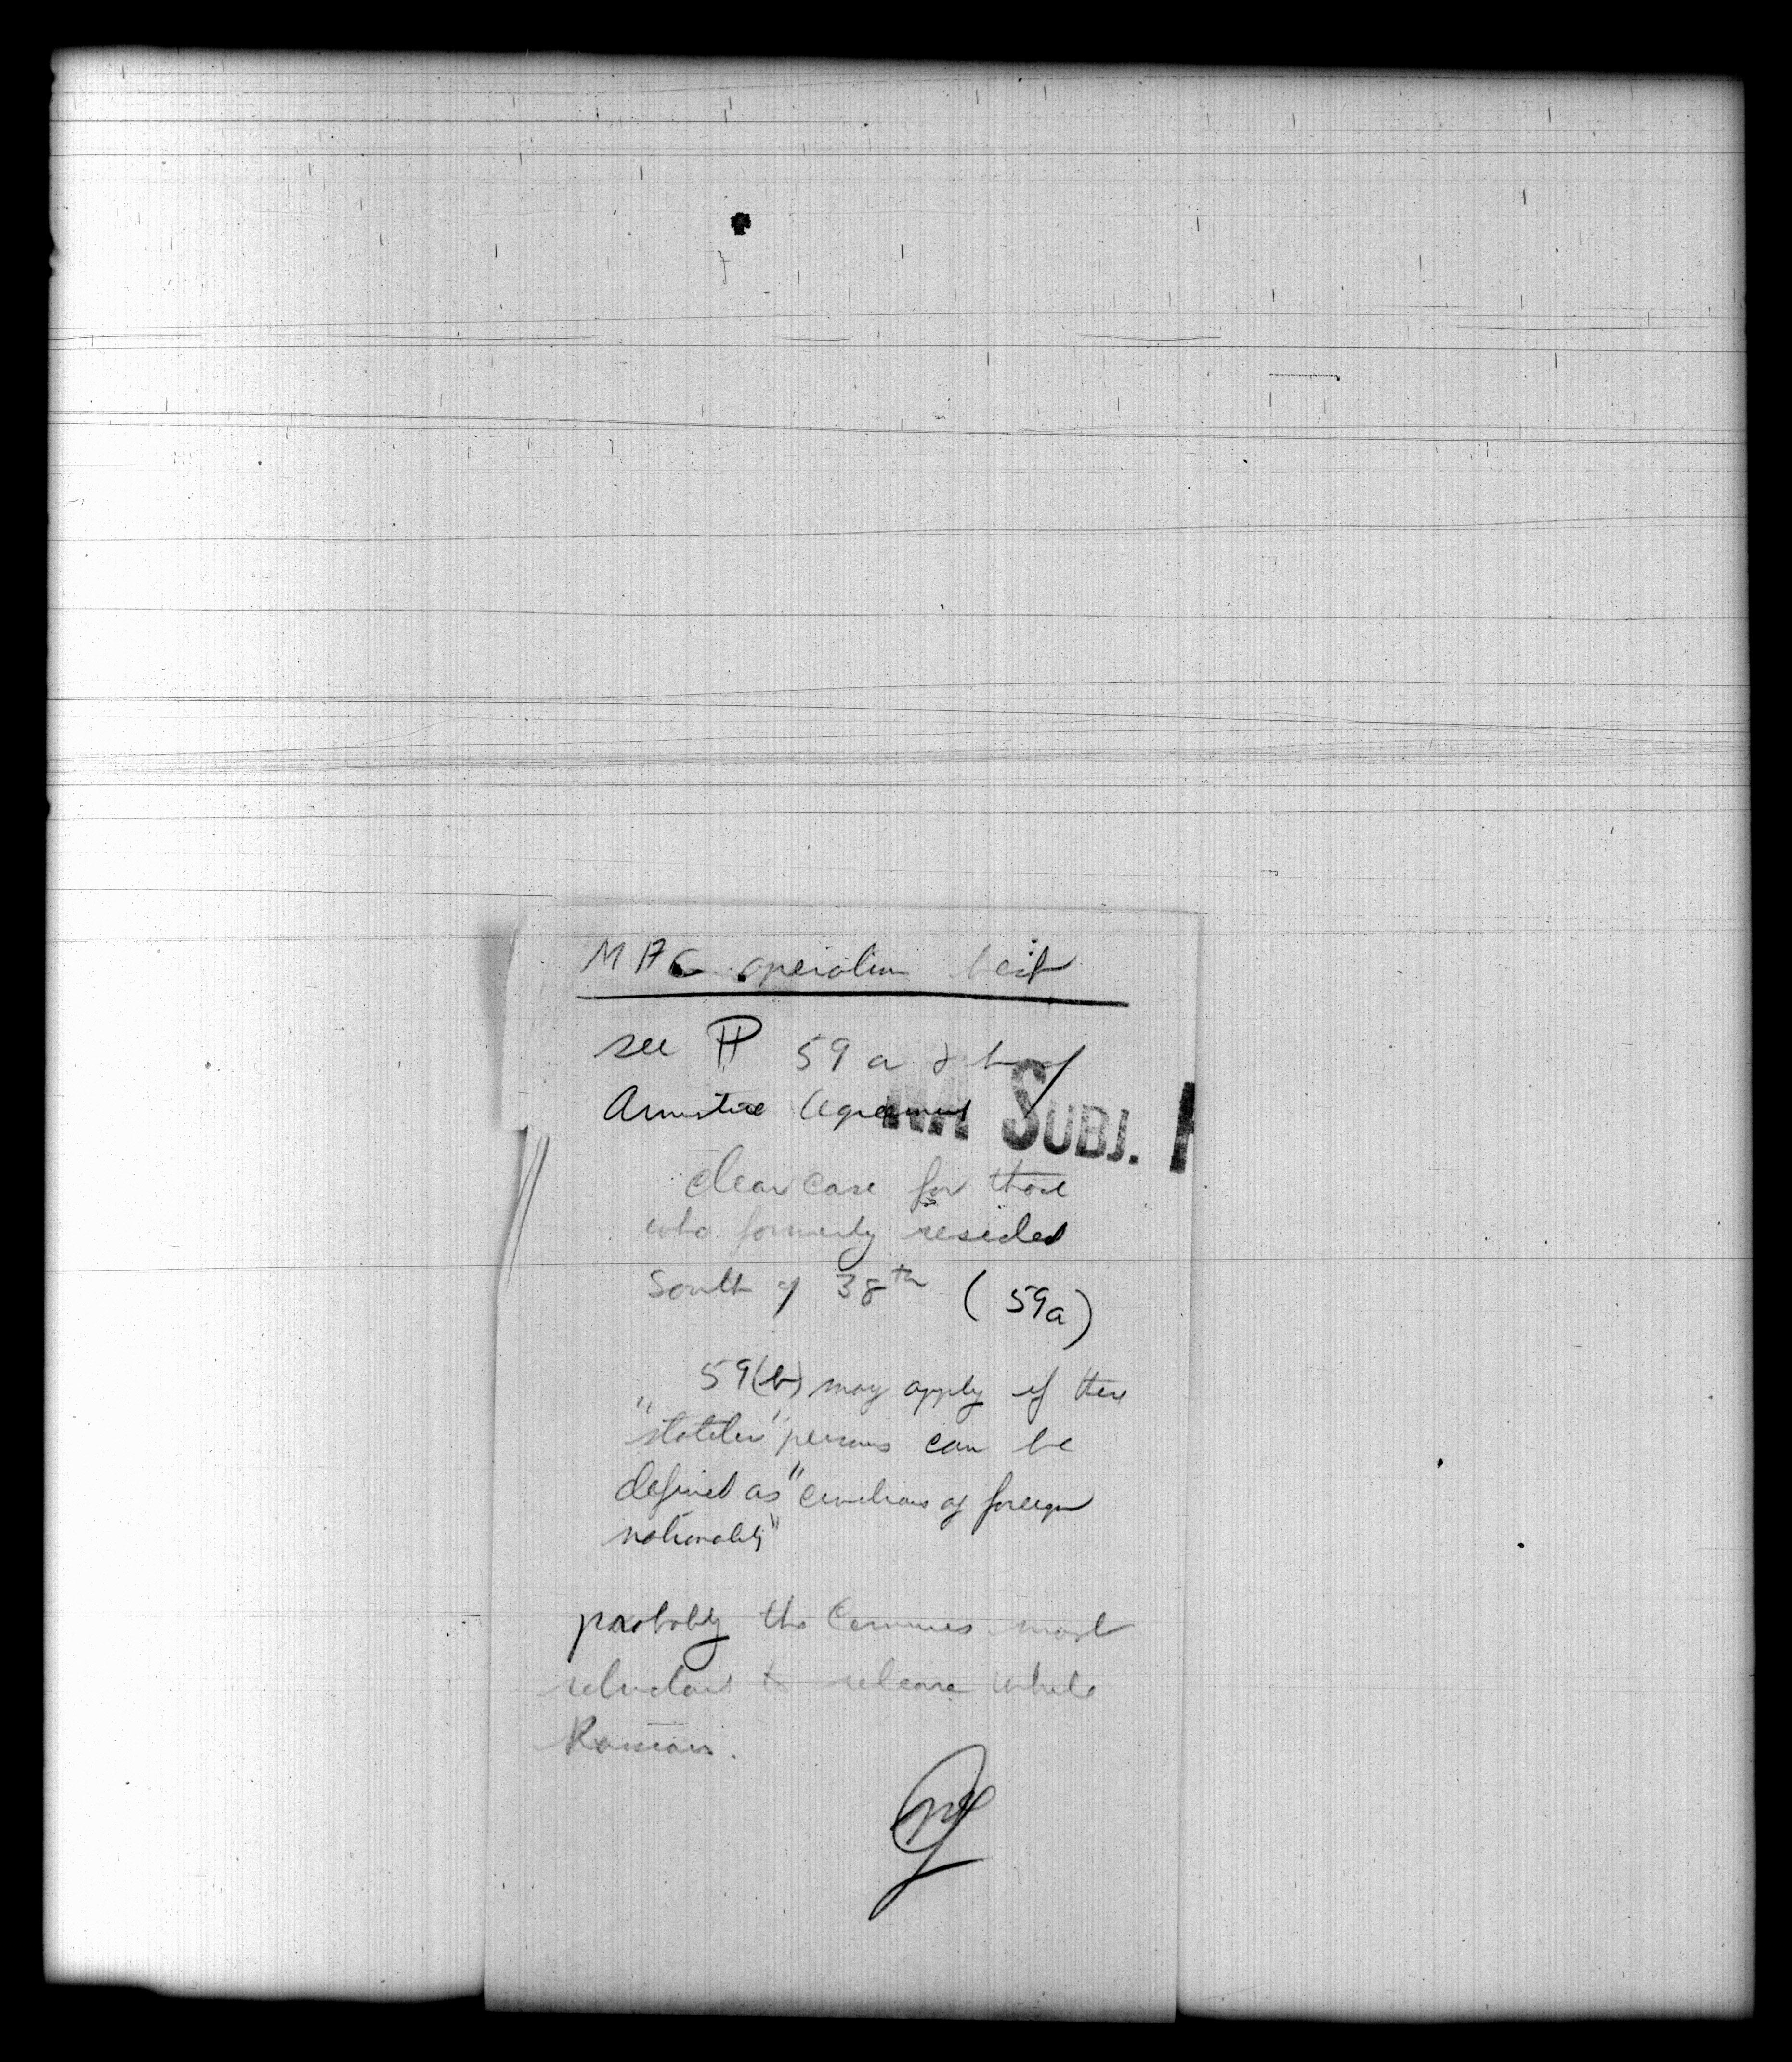 MAC operation best
see ¶ 59 a & b of
Armistice Agreement
NA SUBJ.
clear case for those
who formerly resided
South of 38th (59a)
59(b) may apply if these
"stateless" persons can be
defined as "civilians of foreign
nationality"
probably the Commies most
reluctant to release white
Russians.